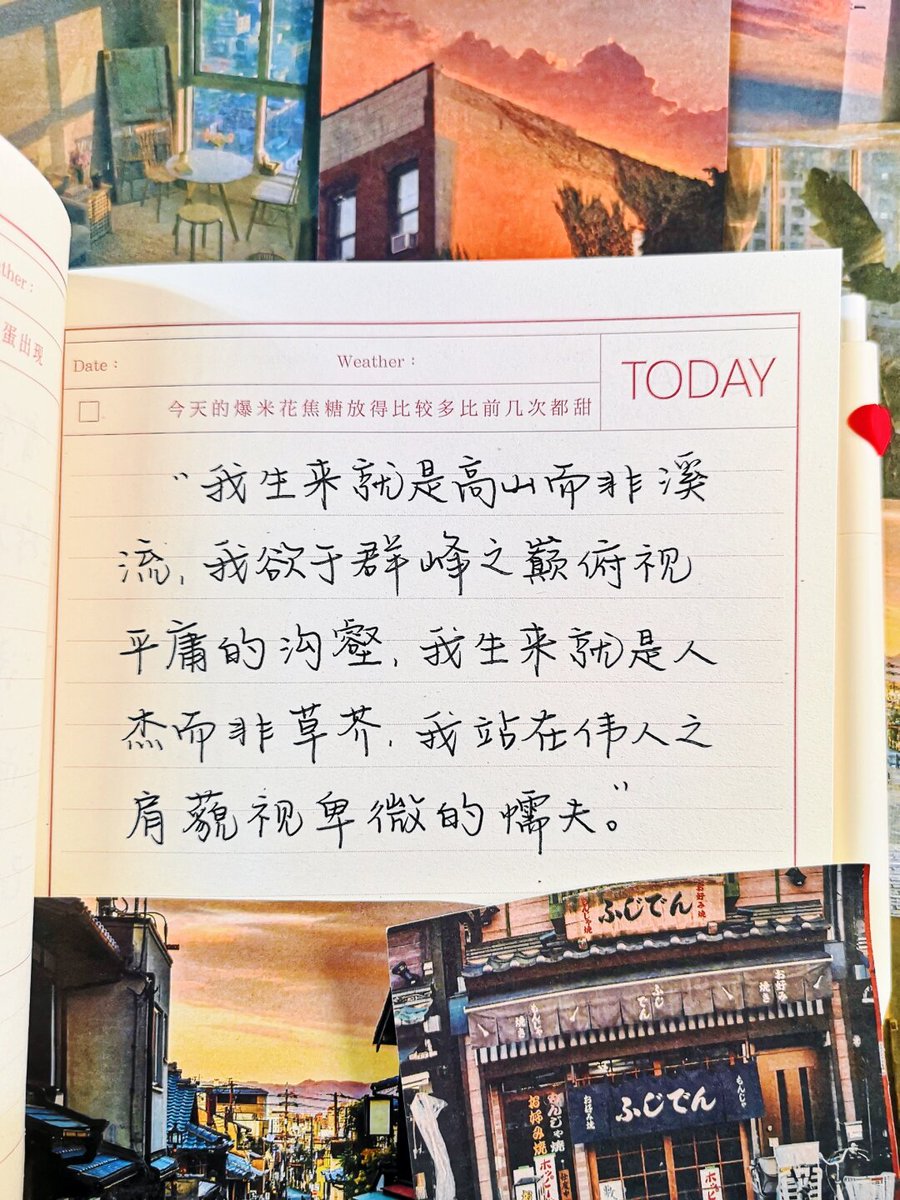 ther：
蛋出现
Date：
Weather：
TODAY
今天的爆米花焦糖放得比较多比前几次都甜
“我生来就是高山而非溪
流，我欲于群峰之巅俯视
平庸的沟壑，我生来就是人
杰而非草芥，我站在伟人之
肩藐视卑微的懦夫。”
ふじでん
お好み焼
もんじゃ焼
もんじゃ焼き
ふじでん
お好み焼き
お好み焼
ふじでん
もんじゃ
もんじゃ焼
お好み焼